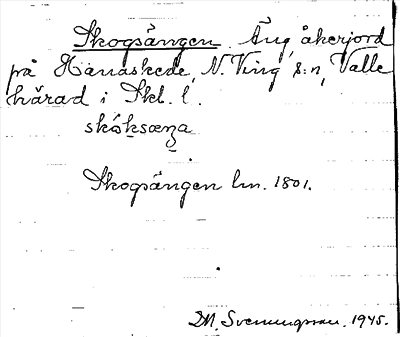 Skogsängen Äng, åkerjord
på Hanaskede, N. Ving s:n, Valle
härad i Skbl. l.
skóksæŋa
Skogsängen lm. 1801.
D.M. Svenungsson. 1945.